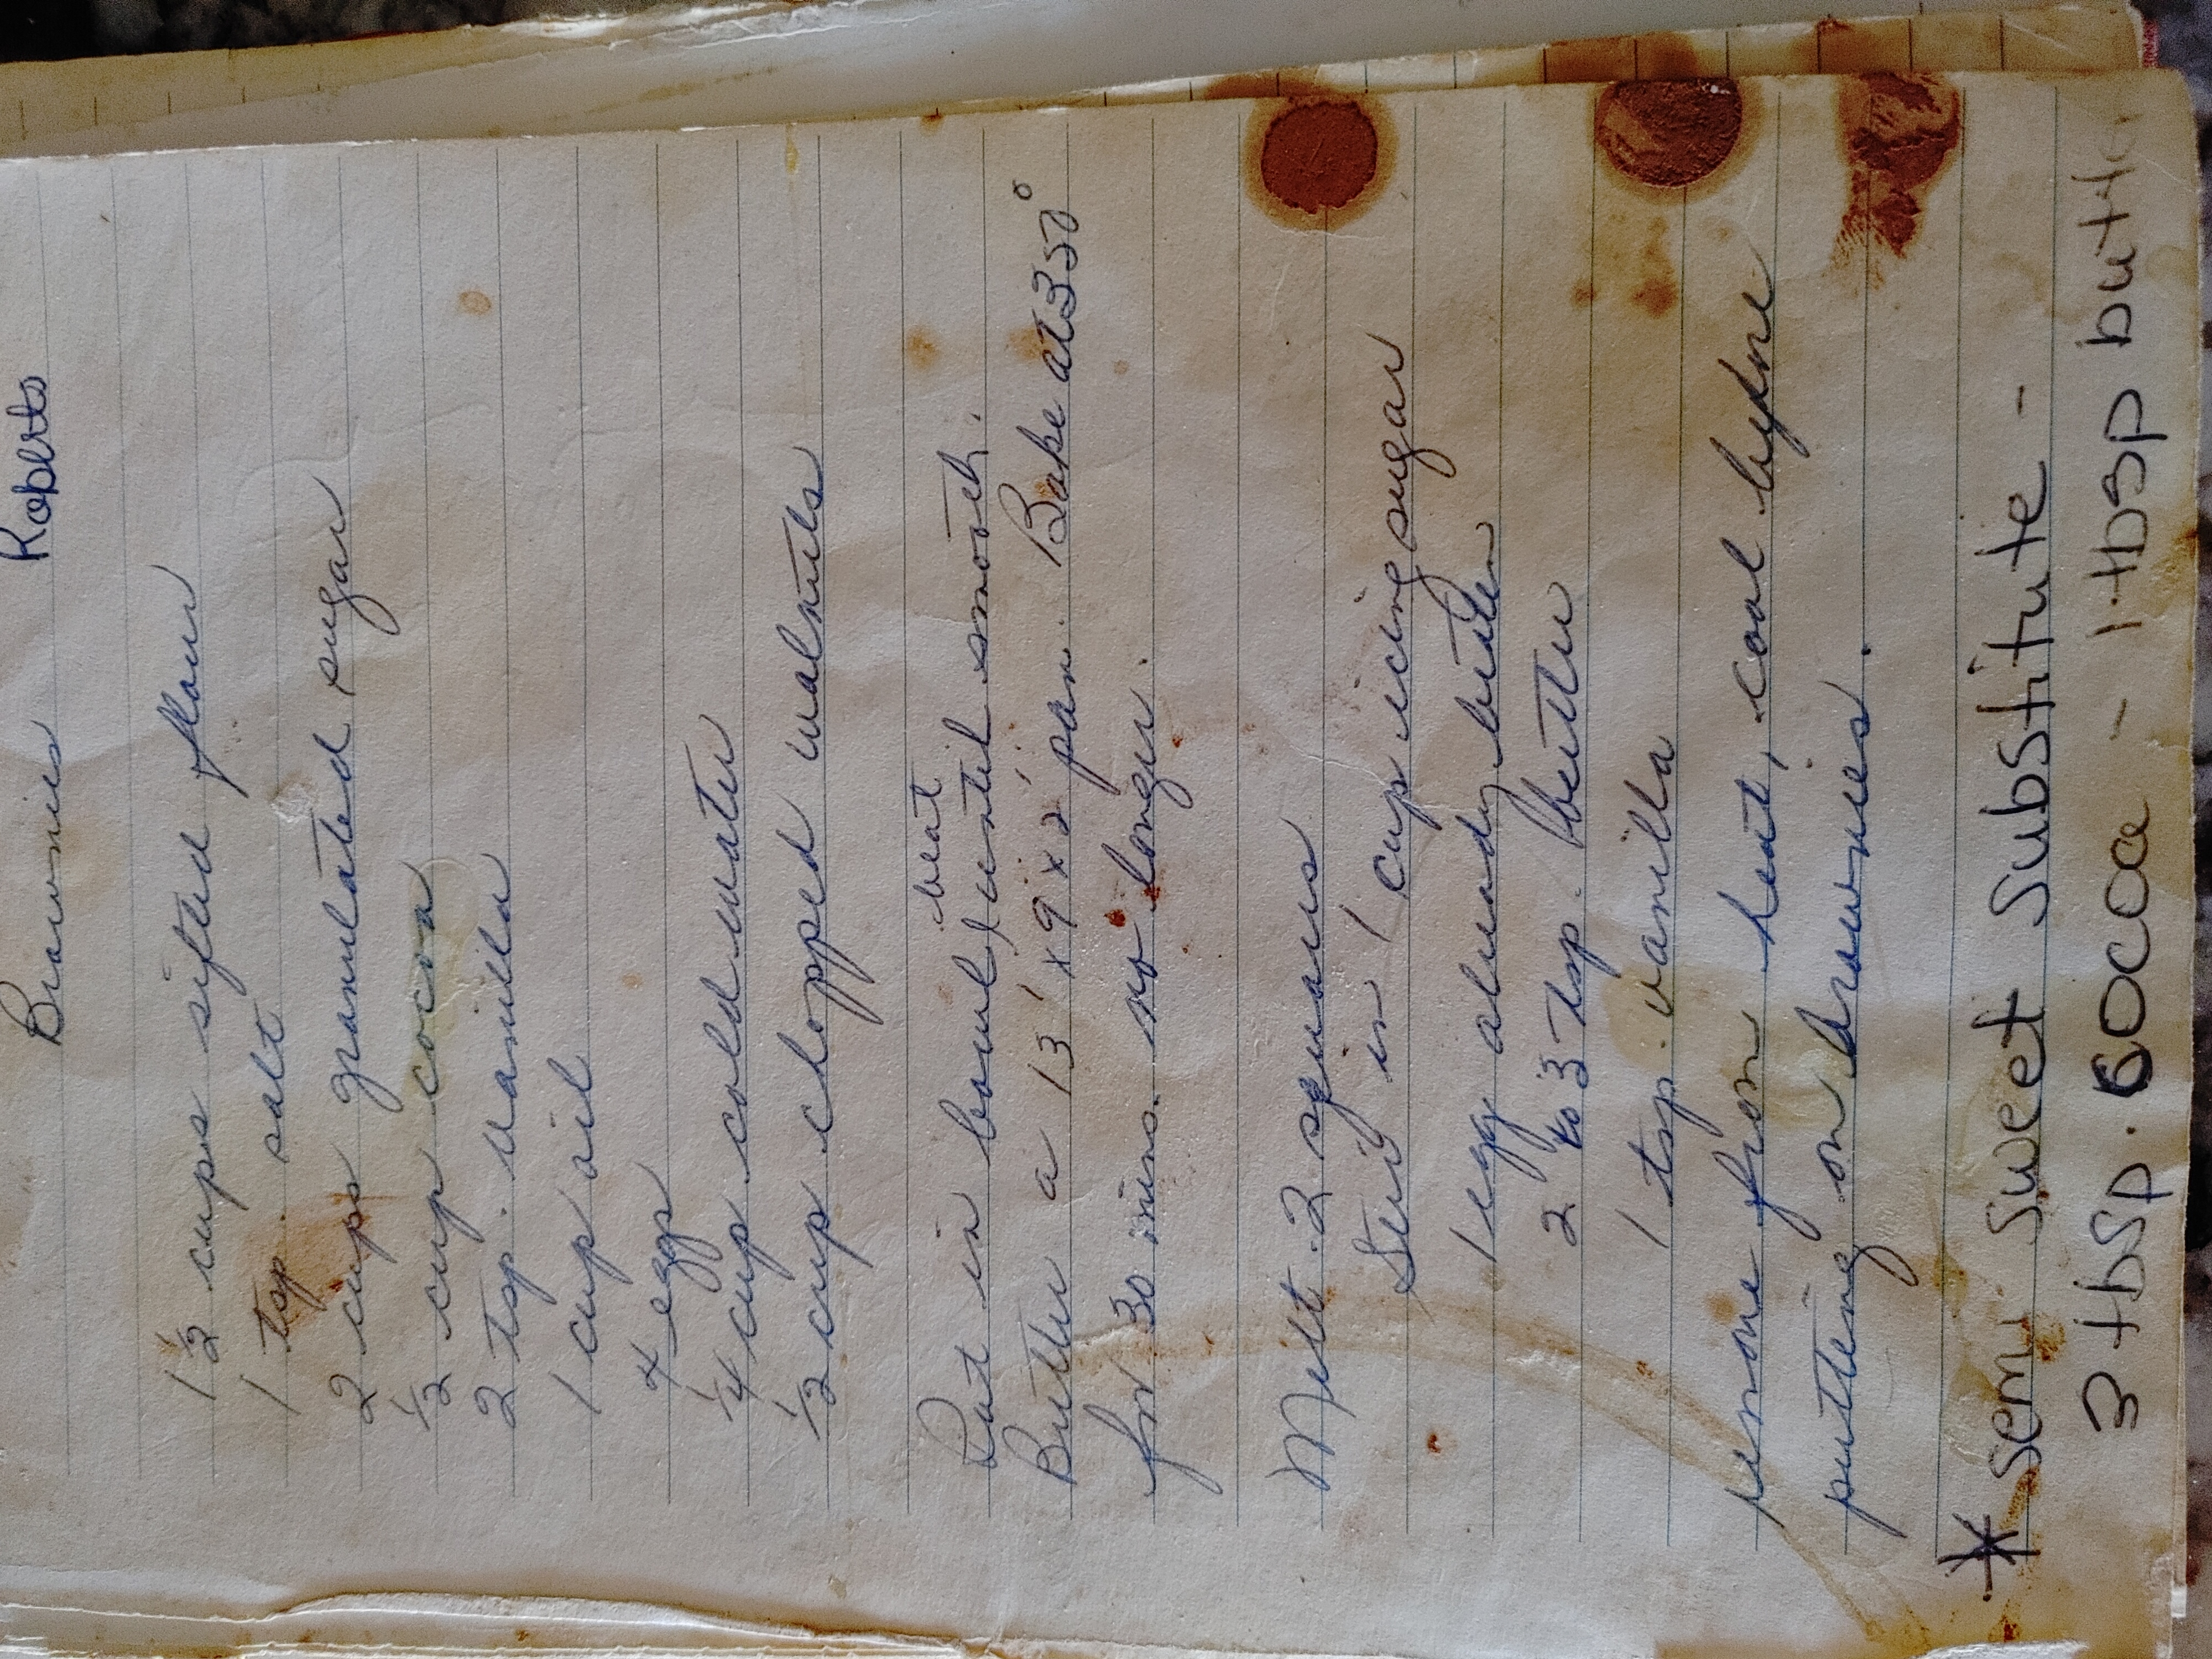 Brownies Roberts
1 1/2 cups sifted flour
1 tsp. salt
2 cups granulated sugar
1/2 cup cocoa
2 tsp. vanilla
1 cup oil
4 eggs
1/4 cup cold water
1/2 cup chopped walnuts
beat
Put in bowl, until smooth.
Butter a 13" x 9" x 2" pan. Bake at 350°
for 30 mins. no longer.
Melt 2 squares
Stir in 1 cup icing sugar
1 egg already beaten
2 to 3 tsp. butter
1 tsp. vanilla
remove from heat, cool before
putting on brownies.
* Semi Sweet Substitute -
3 tbsp. cocoa - 1 tbsp butter